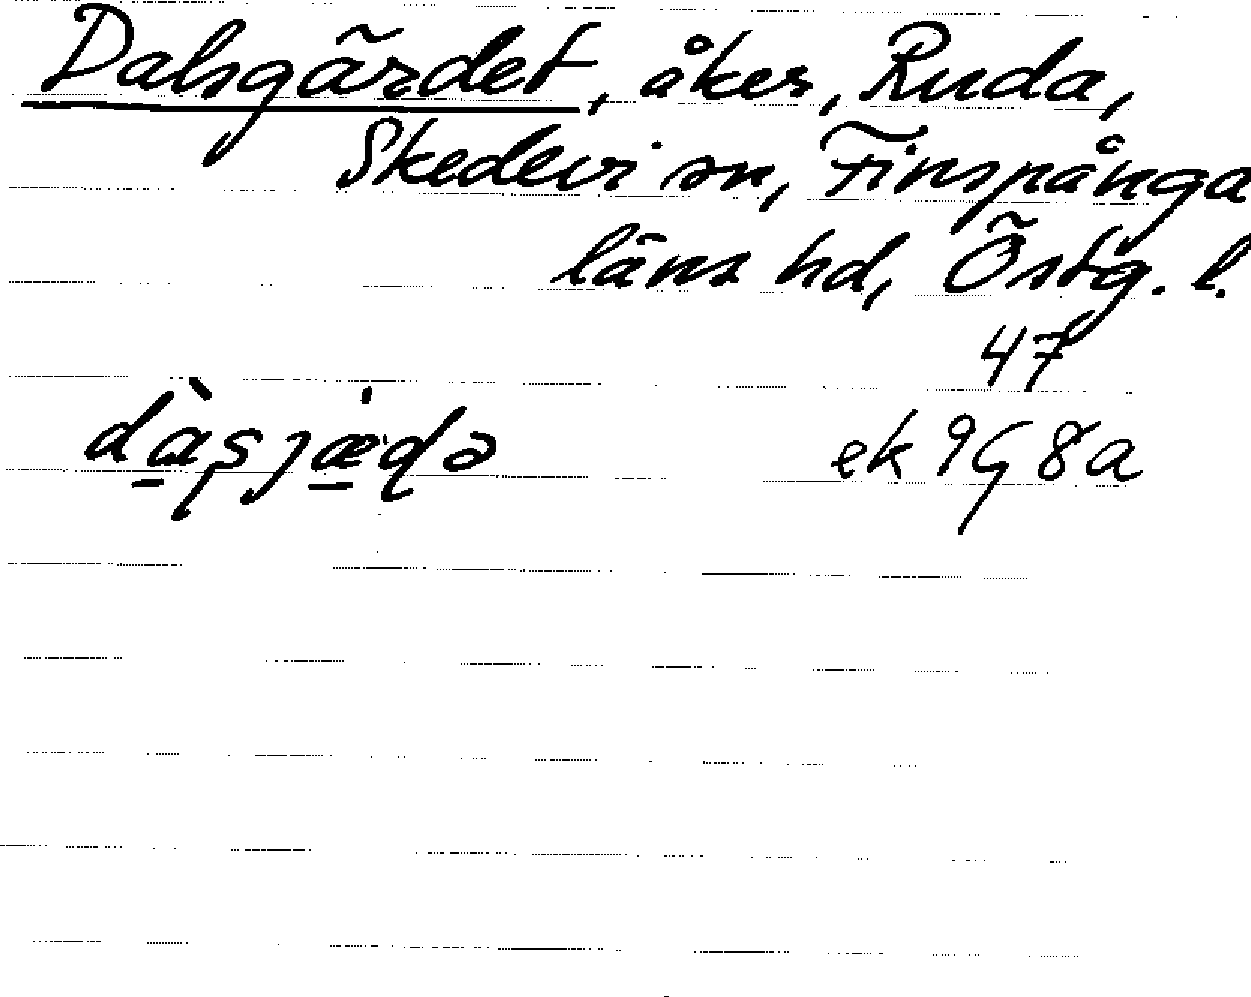 Dalsgärdet, åker, Ruda,
Skedevi sn, Finspånga
läns hd, Östg. l.
47
dàʂjæ̇ɖə ek 9G8a